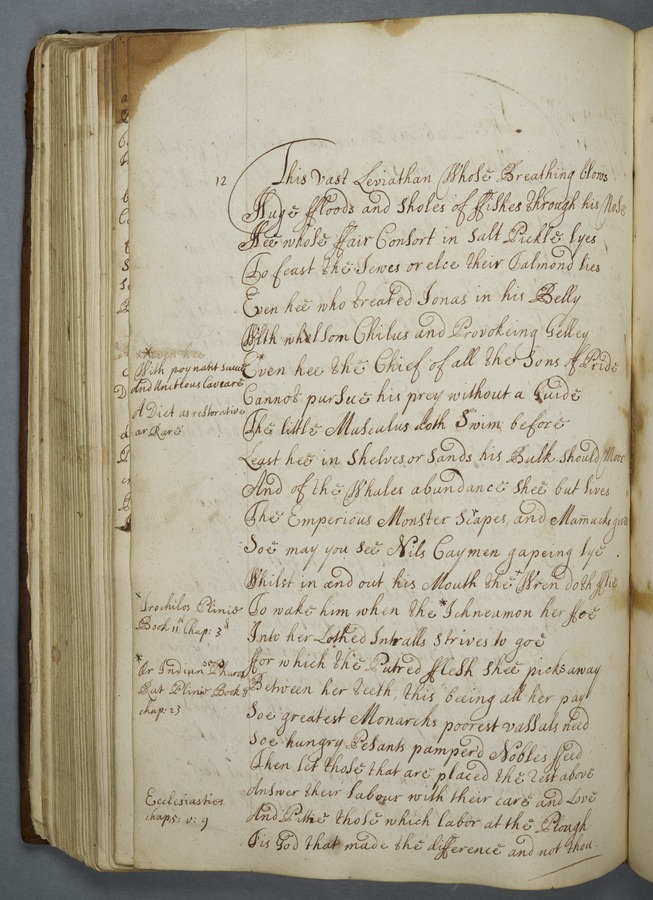 12
This vast Leviathan Whose Breathing blows
Huge ffloods and Sholes of ffishes through his Nose
Hee whose ffair Consort in Salt Pickle lyes
To feast the Jewes or elce their Talmond lies
Even hee who treated Jonas in his Belly
With wholsom Chilus and Provokeing Gelley
Even hee the Chief of all the Sons of Pride
Cannot pursue his prey without a Guide
The little Musculus doth Swim before
Least hee in Shelves or Sands his Bulk should Moor
And of the Whales abundance Shee but lives
The Emperious Monster Scapes, and Mamucks gives
Soe may you see Nils Caymen gapeing lye
Whilst in and out his Mouth the Wren doth fflie
To wake him when the *Ichneumon her ffoe
Into her Lothed Intralls strives to goe
ffor which the Putred fflesh Shee picks away
Between her teeth, this beeing all her pay
Soe greatest Monarchs poorest vassals need
Soe hungry Pesants pamperd Nobles ffeed
Then let those that are placed the rest above
Answer their labour with their care and Love
And Pittie those which labor at the Plough
Tis God that made the difference and not thou
With poynant sauce
And Unctious Caveare
A Diet as restorative
as Rare
*Trochilos Plinie
Book 11th Chap: 3
*Or Indian or Pharos
Rat Plinie Book 8
chap: 23
Ecclesiastics
chap 5: v: 9